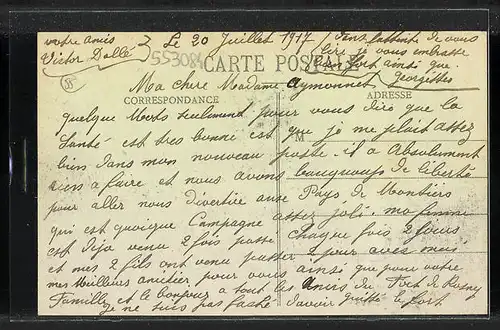 votre amis Le 20 Juillet 1917 dans l'attente de vous
Victor Dallé lire je vous embrasse
553084 bien fort ainsi que
CARTE POSTALE Georgettes
55
Ma chere Madame Aymonnet
CORRESPONDANCE ADRESSE
quelque Mots seulement pour vous dire que la
Santé est tres bonne est que je me plait assez
bien dans mon nouveau poste. il a Absolument
rien a faire et nous avons baucquoups de liberté
pour aller nous divertie aux Pays de
qui est quoique Campagne assez joli. ma femme
est deja venu 2 fois passé chaque fois 2 jours
et mes 2 fils ont venu passer 2 pour avec moi
mes Meilleurs amitier, pour vous ainsi que pour votre
Familly et le bonjour a tout les Amis du Fort de Rosny
je ne suis pas faché d'avoir quitté le fort